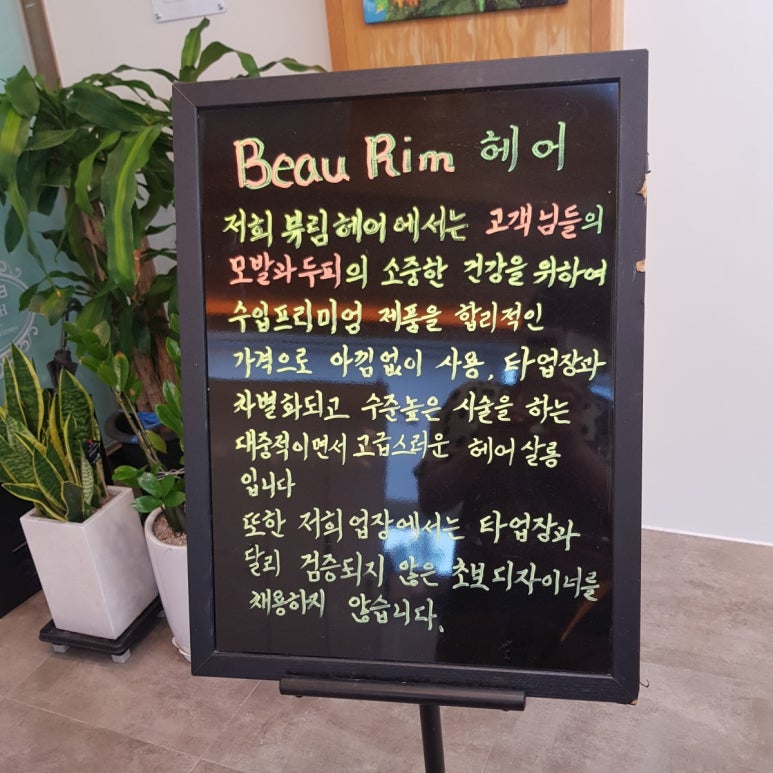 Beau Rim 헤어
저희 뷰림헤어에서는 고객님들의
모발과 두피의 소중한 건강을 위하여
수입프리미엄 제품을 합리적인
가격으로 아낌없이 사용, 타업장과
차별화되고 수준높은 시술을 하는
대중적이면서 고급스러운 헤어살롱
입니다
또한 저희 업장에서는 타업장과
달리 검증되지 않은 초보디자이너를
채용하지 않습니다.